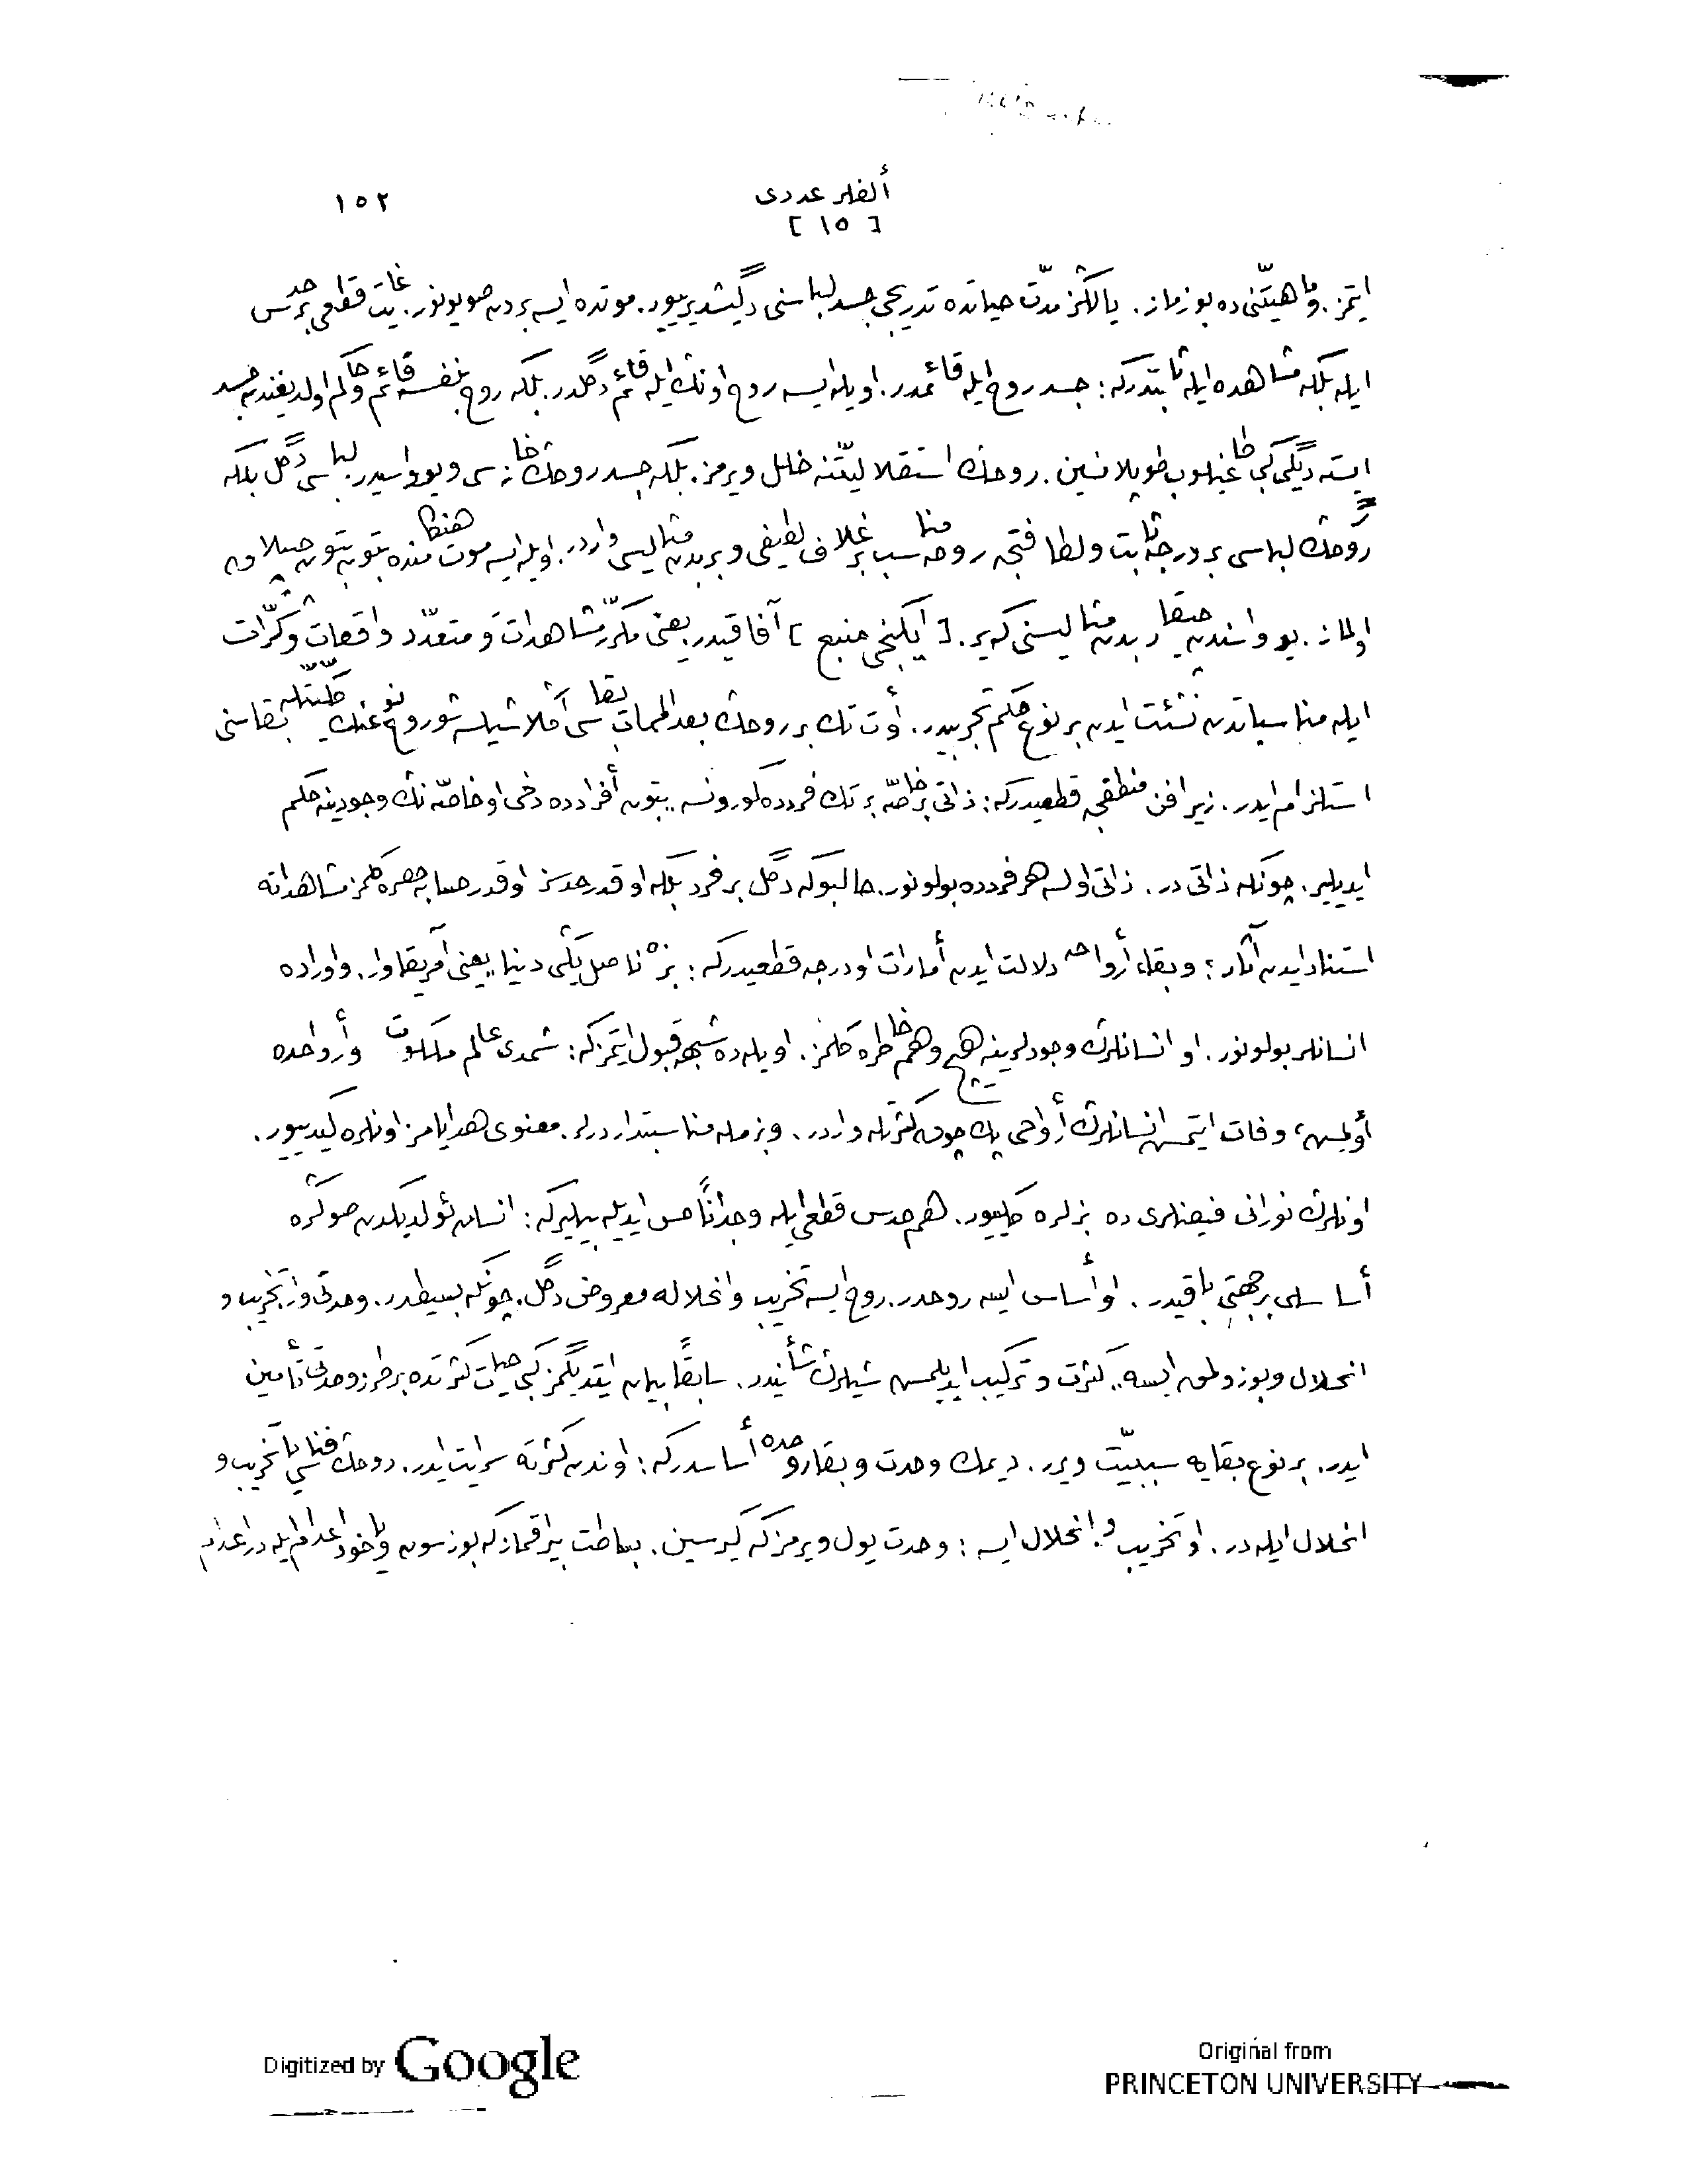 ألفلر عددى
١٥٢
[ ١٥ ]
ايتمز. و ماهيتنى ده بوزماز. يالڭز مدّت حياتده تدريجى جسد لباسنى دگيشديرييور. موتده ايسه بردن صويونور. غايت قطعى بر حدس
ايله بلكه مشاهده ايله ثابتدركه: جسد روح ايله قائمدر. اويله ايسه روح اونڭ ايله قائم دگلدر. بلكه روح بنفسه قائم و حاكم اولديغندن جسد
ايسته ديگى گبى طاغيلوب طوپلانسين. روحڭ استقلاليّتنه خلل ويرمز. بلكه جسد روحڭ خانه سى و يوواسيدر. لباسى دگل بلكه
روحڭ لباسى بر درجه ثابت و لطافتجه روحه مناسب بر غلاف لطيفى و بر بدن مثاليسى واردر. اويله ايسه موت هنگامنده بتون بتون چيپلاق
اولماز. يوواسندن چيقار بدن مثاليسنى گير. [ ايكنجى منبع ] آفاقيدر يعنى مكرّر مشاهدات و متعدّد واقعات و كرّات
ايله مناسباتدن نشئت ايدن بر نوع حكم تجربيدر. أوت تك بر روحڭ بعد الممات بقاسى آڭلاشيلسه شو روح نوعنڭ كليّتله بقاسنى
استلزام ايدر. زيرا فن منطقجه قطعيدركه: ذاتى بر خاصّه بر تك فردده گورونسه بتون أفرادده دخى او خاصّه نڭ وجودينه حكم
ايديلير. چونكه ذاتى در. ذاتى اولسه هر فردده بولونور. حالبوكه دگل بر فرد بلكه او قدر حدسز او قدر حسابه حصره گلمز مشاهداته
استناد ايدن آثار؛ و بقاء أرواحه دلالت ايدن أمارات او درجه قطعيدركه: بزه ناصل يڭى دنيا يعنى آمريقا وار. و اوراده
انسانلر بولونور. او انسانلرڭ وجودلرينه هيچ وهم خاطره گلمز. اويله ده شبهه قبول ايتمزكه: شمدى عالم ملكوت و أرواحده
أولمش، وفات ايتمش انسانلرڭ أرواحى پك چوق كثرتله واردر. و بزمله مناسبتداردرلر. معنوى هدايامز اونلره گيدييور.
اونلرڭ نورانى فيضلرى ده بزلره گلييور. هم حدس قطعى ايله وجدانًا حس ايديله بيليركه: انسان ئولدكدن صوڭره
أساسلى بر جهتى باقيدر. او أساس ايسه روحدر. روح ايسه تخريب و انحلاله معروض دگل. چونكه بسيطدر. وحدتى وار. تخريب و
انحلال و بوزولمق ايسه كثرت و تركيب ايديلمش شيلرڭ شأنيدر. سابقًا بيان ايتديگمز گبى حيات كثرتده بر طرز وحدتى تأمين
ايدر. بر نوع بقايه سببيّت ويرر. ديمك وحدت و بقا روحده أساسدركه: اوندن كثرته سرايت ايدر. روحڭ فناسى يا تخريب و
انحلال ايله در. او تخريب و انحلال ايسه: وحدت يول ويرمزكه گيرسين. بساطت بيراقمازكه بوزسون و ياخود اعدام ايله در. اعدام
Digitized by Google
Original from
PRINCETON UNIVERSITY